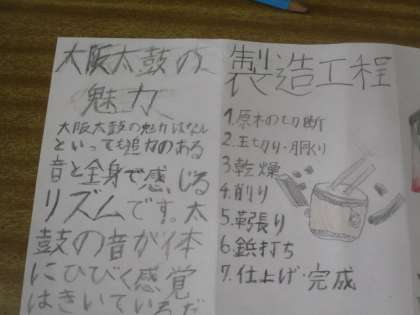 大阪太鼓の
魅力
大阪太鼓の魅力はなん
といっても迫力のある
音と全身で感じる
リズムです。太
鼓の音が体
にひびく感覚
はきいているだ
製造工程
1.原木の切断
2.玉切り・胴くり
3.乾燥
4.削り
5.革張り
6.鋲打ち
7.仕上げ・完成